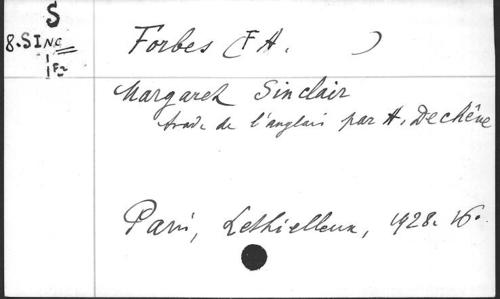 S
8.SINC
1Fr
Forbes (F A. )
Margaret Sinclair
trad. de l'anglais par A. Dechêne
Paris, Lethielleux, 1928. 16°